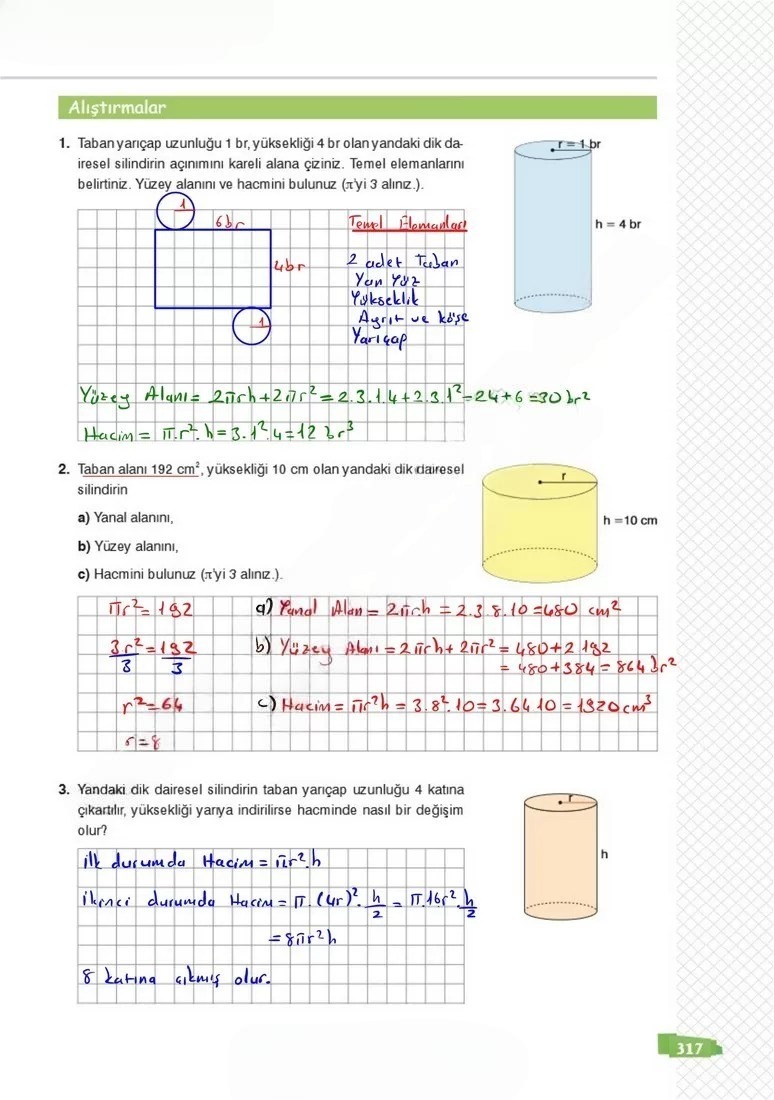 Alıştırmalar
1. Taban yarıçap uzunluğu 1 br, yüksekliği 4 br olan yandaki dik da-
iresel silindirin açınımını kareli alana çiziniz. Temel elemanlarını
belirtiniz. Yüzey alanını ve hacmini bulunuz (π'yi 3 alınız.).
r = 1 br
h = 4 br
1
6br
4br
1
Temel Elemanları
2 adet Taban
Yan Yüz
Yükseklik
Ayrıt ve köşe
Yarıçap
Yüzey Alanı = 2πrh+2πr² = 2.3.1.4+2.3.1² = 24+6 = 30 br²
Hacim = π.r².h = 3.1².4 = 12 br³
2. Taban alanı 192 cm², yüksekliği 10 cm olan yandaki dik dairesel
silindirin
a) Yanal alanını,
b) Yüzey alanını,
c) Hacmini bulunuz (π'yi 3 alınız.).
r
h = 10 cm
πr² = 192
3r² = 192
3 3
r² = 64
r = 8
a) Yanal Alan = 2πrh = 2.3.8.10 = 480 cm²
b) Yüzey Alanı = 2πrh + 2πr² = 480+2.192
= 480+384 = 864 br²
c) Hacim = πr²h = 3.8².10 = 3.64.10 = 1920 cm³
3. Yandaki dik dairesel silindirin taban yarıçap uzunluğu 4 katına
çıkartılır, yüksekliği yarıya indirilirse hacminde nasıl bir değişim
olur?
r
h
ilk durumda Hacim = πr².h
ikinci durumda Hacim = π.(4r)².h/2 = π.16r².h/2
= 8πr²h
8 katına çıkmış olur.
317